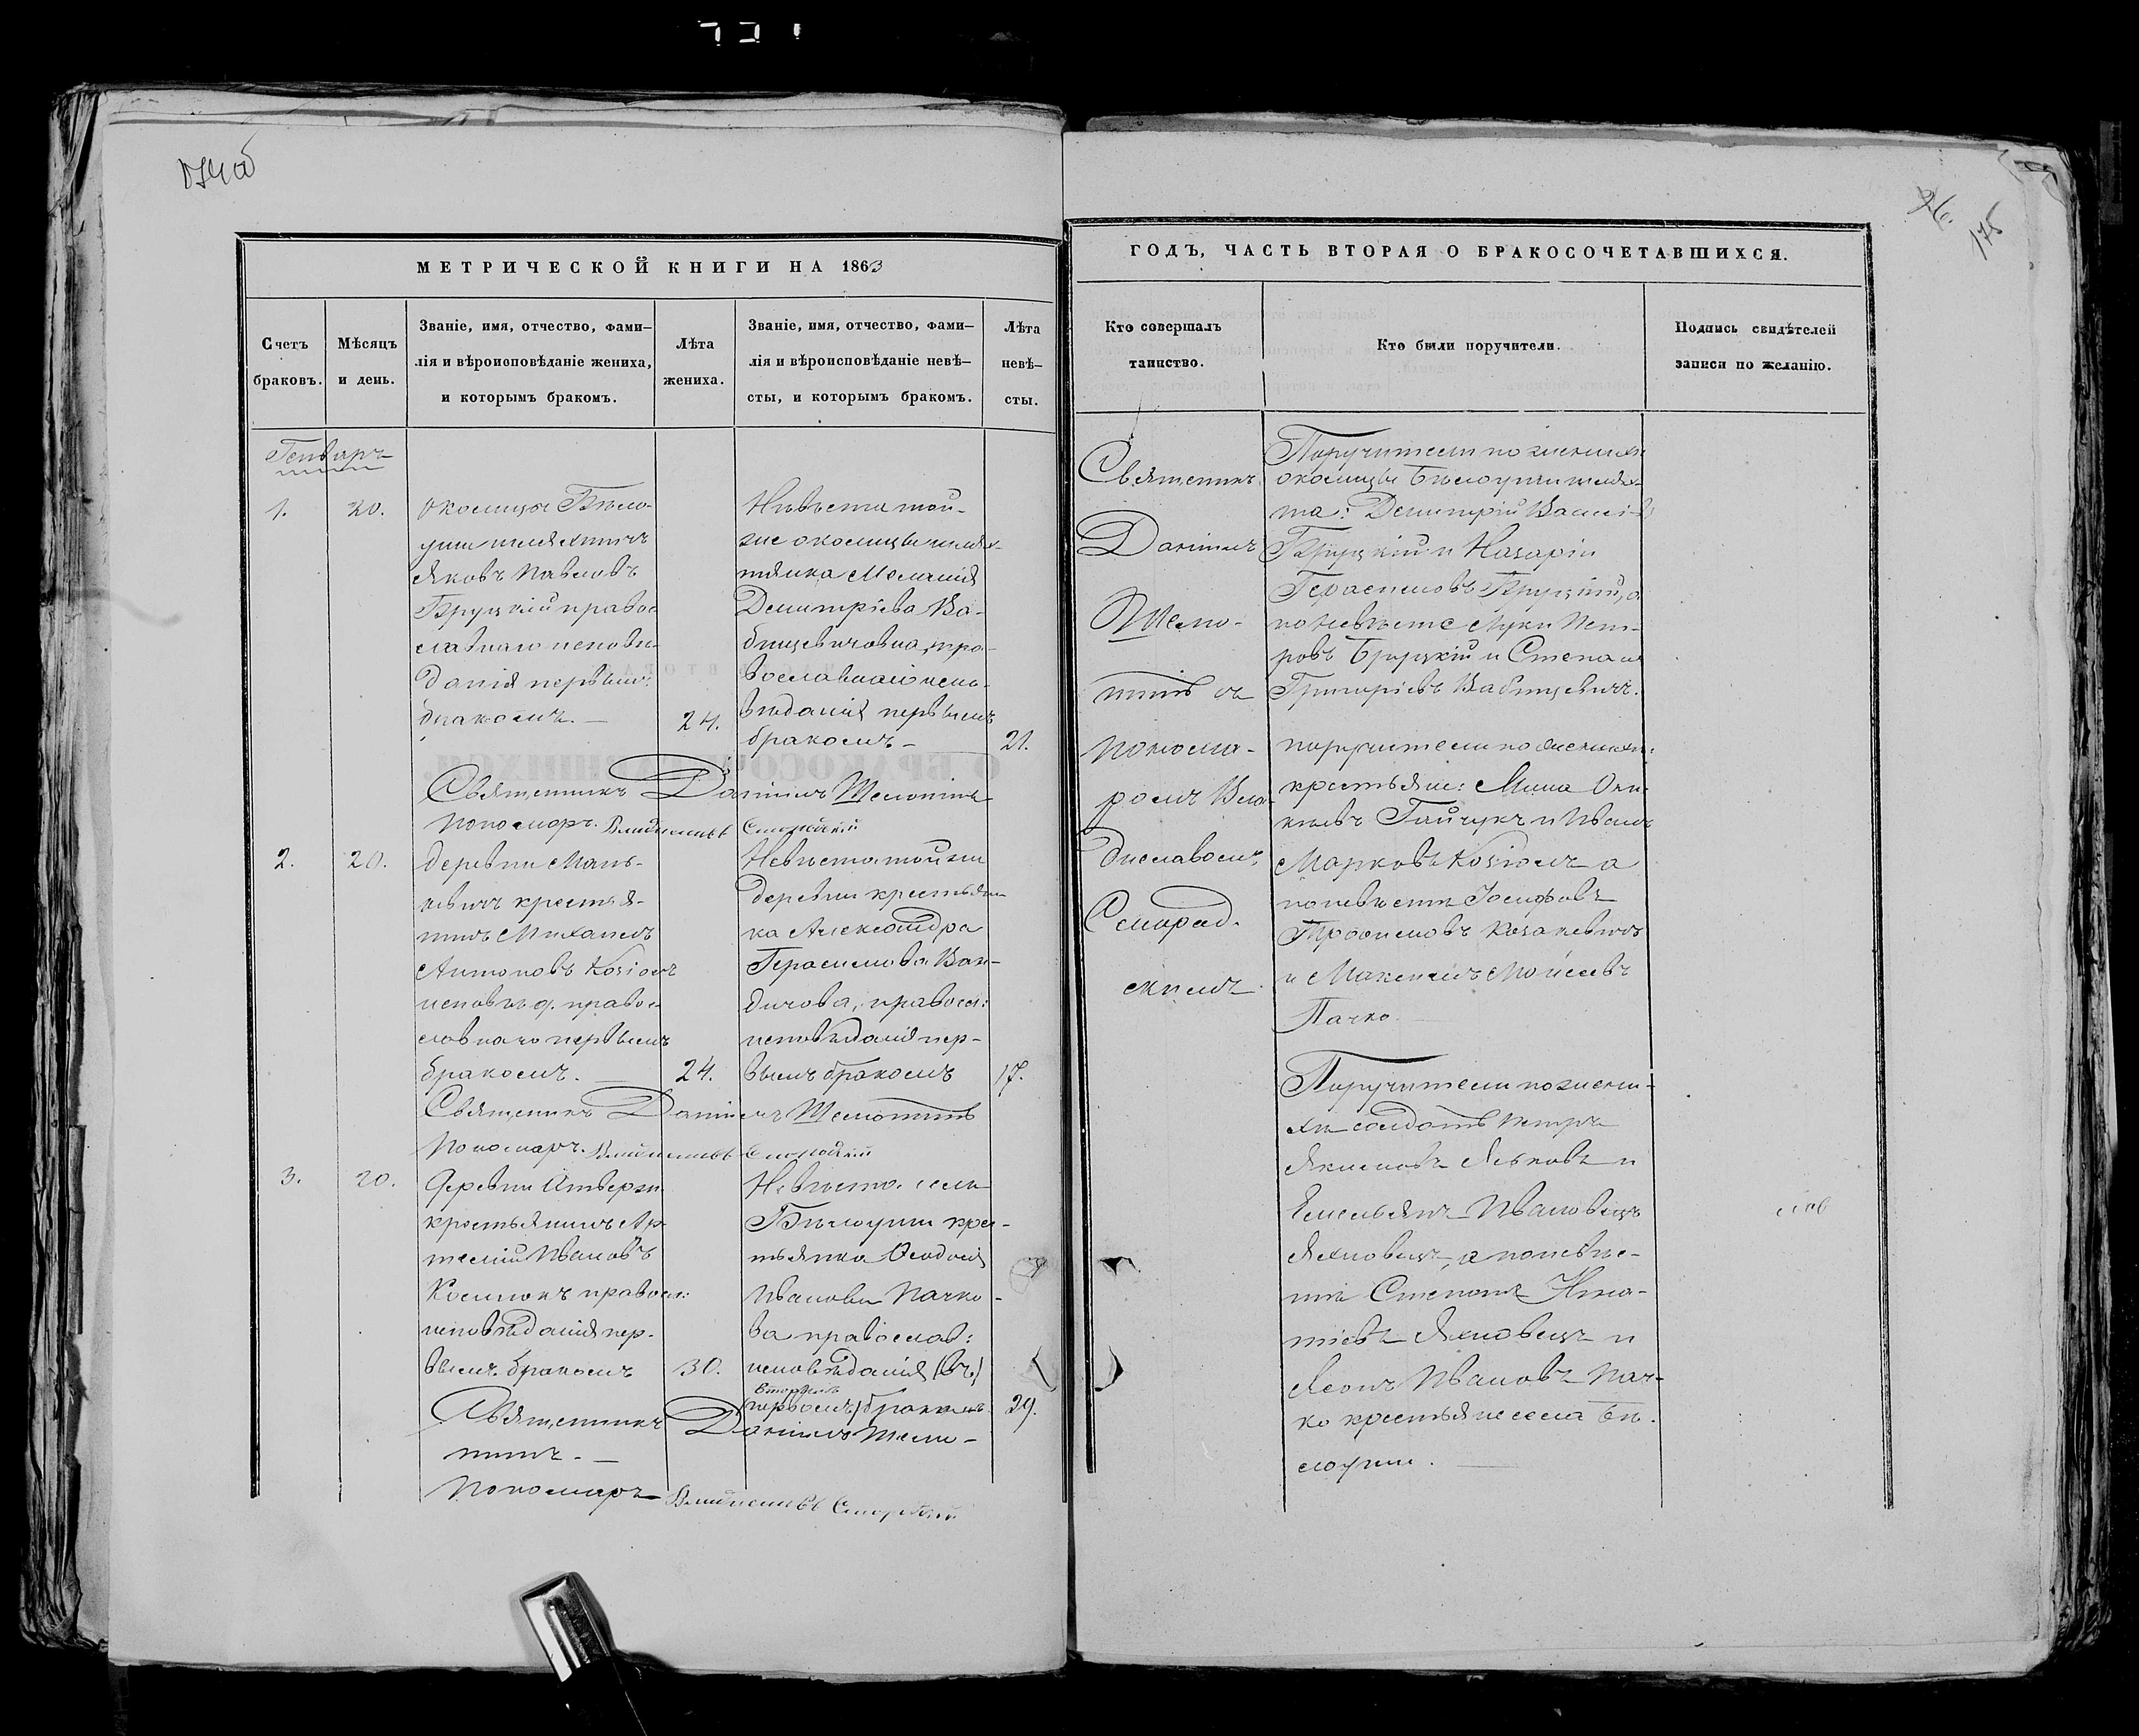 174об
26.
175
МЕТРИЧЕСКОЙ КНИГИ НА 1863
Счетъ браковъ.
Мѣсяцъ и день.
Званіе, имя, отчество, фами-
лія и вѣроисповѣданіе жениха,
и которымъ бракомъ.
Лѣта жениха.
Званіе, имя, отчество, фами-
лія и вѣроисповѣданіе невѣ-
сты, и которымъ бракомъ.
Лѣта невѣ-
сты.
Генварь
1.
20.
околицы Бѣло-
уши шляхтичъ
Яковъ Павловъ
Бруцкій право-
славнаго исповѣ-
данія первымъ
бракомъ. —
24.
Невѣста той-
же околицы шлях-
тянка Меланія
Димитріева Ва-
бищевичовна, пра-
вославнаго испо-
вѣданія первымъ
бракомъ —
21.
Священникъ Даніилъ Шеметилъ
Пономарь
2.
20.
деревни Мань-
кевичъ крестья-
нинъ Михаилъ
Антоновъ Козіолъ
исповѣд. право-
славнаго первымъ
бракомъ. —
24.
Невѣста той же
деревни крестьян-
ка Александра
Герасимова Ван-
дичова, правосл:
исповѣданія пер-
вымъ бракомъ
17.
Священникъ Даніилъ
Пономарь
3.
20.
Деревни Отвержи
крестьянинъ Ар-
темій Ивановъ
правосл:
исповѣданія пер-
вымъ бракомъ
30.
Невѣста села
Бѣлоуши крес-
тьянка Ѳеодосія
Иванова Пачко-
ва православ:
исповѣданія (въ)
вторымъ
первомъ) бракомъ
29.
Священникъ Даніилъ
Пономарь
ГОДЪ, ЧАСТЬ ВТОРАЯ О БРАКОСОЧЕТАВШИХСЯ.
Кто совершалъ
таинство.
Кто были поручители.
Подпись свидѣтелей
записи по желанію.
Священникъ
Даніилъ
съ
понома-
ромъ Вла-
диславомъ
Поручители по женихѣ
околицы Бѣлоуши шлях-
та: Димитрій
Бруцкій и Назарій
Герасимовъ Бруцкій, а
по невѣстѣ Луки Пет-
ровъ Бруцкій и Степанъ
Григоріевъ Вабищевичъ.
поручители по женихѣ:
крестьяне: Мина
Гайчукъ и Иванъ
Марковъ Козіолъ а
по невѣстѣ Іосифовъ
Трофимовъ Козакевичъ
и Максимъ Моисеевъ
Пачко —
Поручители по жени-
хѣ солдатъ Петръ
Якимовъ Яськовъ и
Емельянъ Ивановъ
Яхновецъ, а по невѣс-
тѣ Степанъ Игна-
тіевъ Яхновецъ и
Леонъ Ивановъ Пач-
ко крестьяне села Бѣ-
лоуши. —